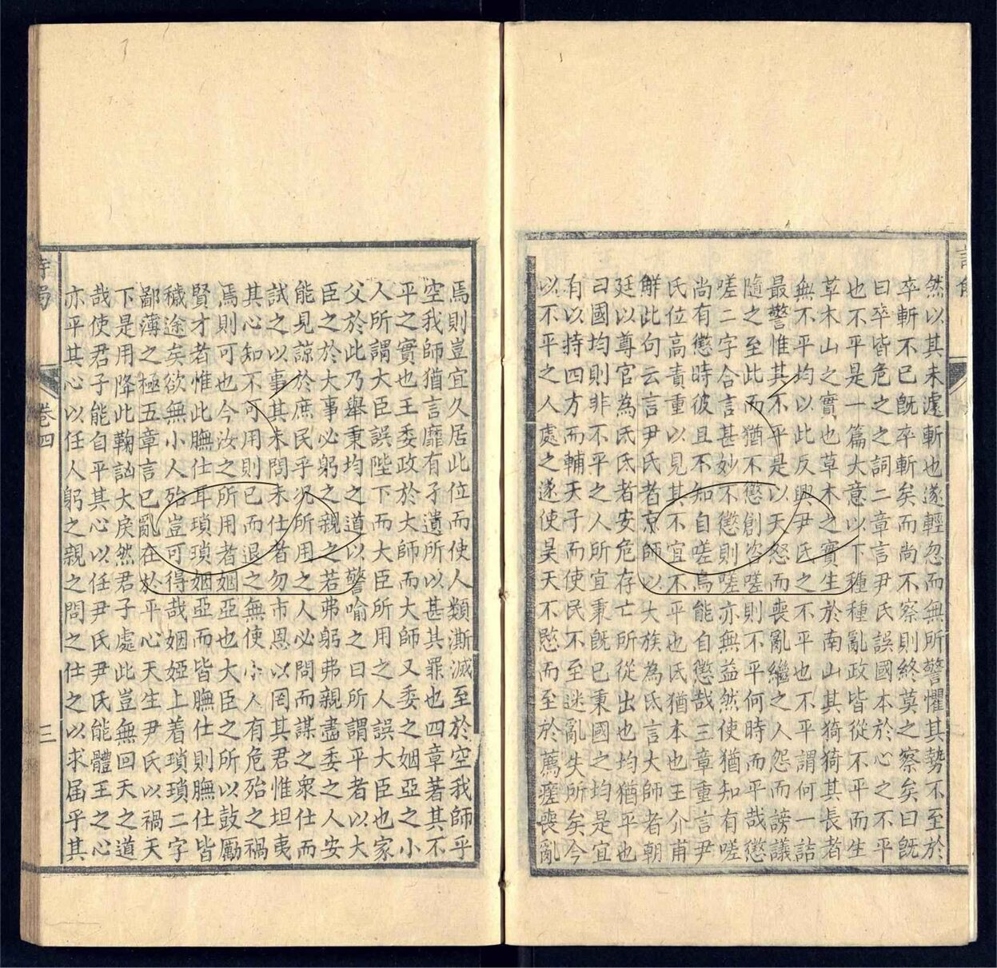 然以其未遽斬也遂輕忽而無所警懼其勢不至於
卒斬不已旣卒斬矣而尚不察則終莫之察矣曰旣
曰卒皆危之之詞二章言尹氏誤國本於心之不平
也不平是一篇大意以下種種亂政皆從不平而生
草木山之實也草木之實生於南山其猗猗其長者
無不平均以此反興尹氏之不平也不平謂何一詰
最警惟其不平是以天怒而喪亂繼之人怨而謗議
隨之至此而猶不懲創咨嗟則不平何時而平哉懲
嗟二字合言甚妙不懲則嗟亦無益然使猶知有嗟
尚有懲時彼且不知自嗟烏能自懲哉三章重言尹
氏位高責重以見其不宜不平也氏猶本也王介甫
鮮此句云言尹氏者京師以大族為氏言大師者朝
廷以尊官為氏氏者安危存亡所從出也均猶平也
曰國均則非不平之人所宜秉旣已秉國之均是宜
有以持四方而輔天子而使民不至迷亂失所矣今
以不平之人處之遂使昊天不慭而至於薦瘥喪亂
焉則豈宜久居此位而使人類澌滅至於空我師乎
空我師猶言靡有孑遺所以甚其罪也四章著其不
平之實也王委政於大師而大師又委之姻亞之小
人所謂大臣誤陛下而大臣所用之人誤大臣也家
父於此乃舉秉均之道以警喻之曰所謂平者以大
臣之於大事必躬之親之若弗躬弗親盡委之人安
能見諒於庶民乎況所用之人必問而謀之衆仕而
試之以事其未問未仕者勿市恩以罔其君惟坦夷
其心知不可用則已而退之無使小人有危殆之禍
焉則可也今汝之所用者姻亞也大臣之所以鼓勵
賢才者惟此膴仕耳瑣瑣姻亞而皆膴仕則膴仕皆
穢途矣欲無小人殆豈可得哉姻婭上着瑣瑣二字
鄙薄之極五章言已亂在於平心天生尹氏以禍天
下是用降此鞠訩大戾然君子處此豈無回天之道
哉使君子能自平其心以任尹氏尹氏能體王之心
亦平其心以任人躬之親之問之仕之以求届乎其
卷四
三